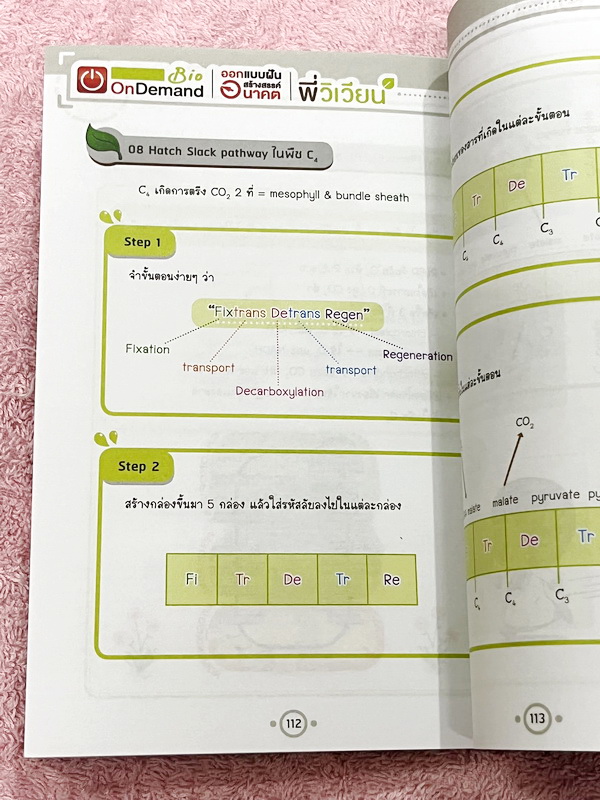 Bio
OnDemand
ออกแบบฝัน
สร้างสรรค์
อนาคต
พี่วิเวียน
08 Hatch Slack pathway ในพืช C₄
C₄ เกิดการตรึง CO₂ 2 ที่ = mesophyll & bundle sheath
Step 1
จำขั้นตอนง่ายๆ ว่า
"Fixtrans Detrans Regen"
Fixation
Regeneration
transport
transport
Decarboxylation
Step 2
สร้างกล่องขึ้นมา 5 กล่อง แล้วใส่รหัสลับลงไปในแต่ละกล่อง
Fi Tr De Tr Re
112
ของสารที่เกิดในแต่ละขั้นตอน
Tr De Tr
C₄ C₄ C₃
ในแต่ละขั้นตอน
CO₂
malate malate pyruvate
Tr De Tr
C₄ C₄ C₃
113